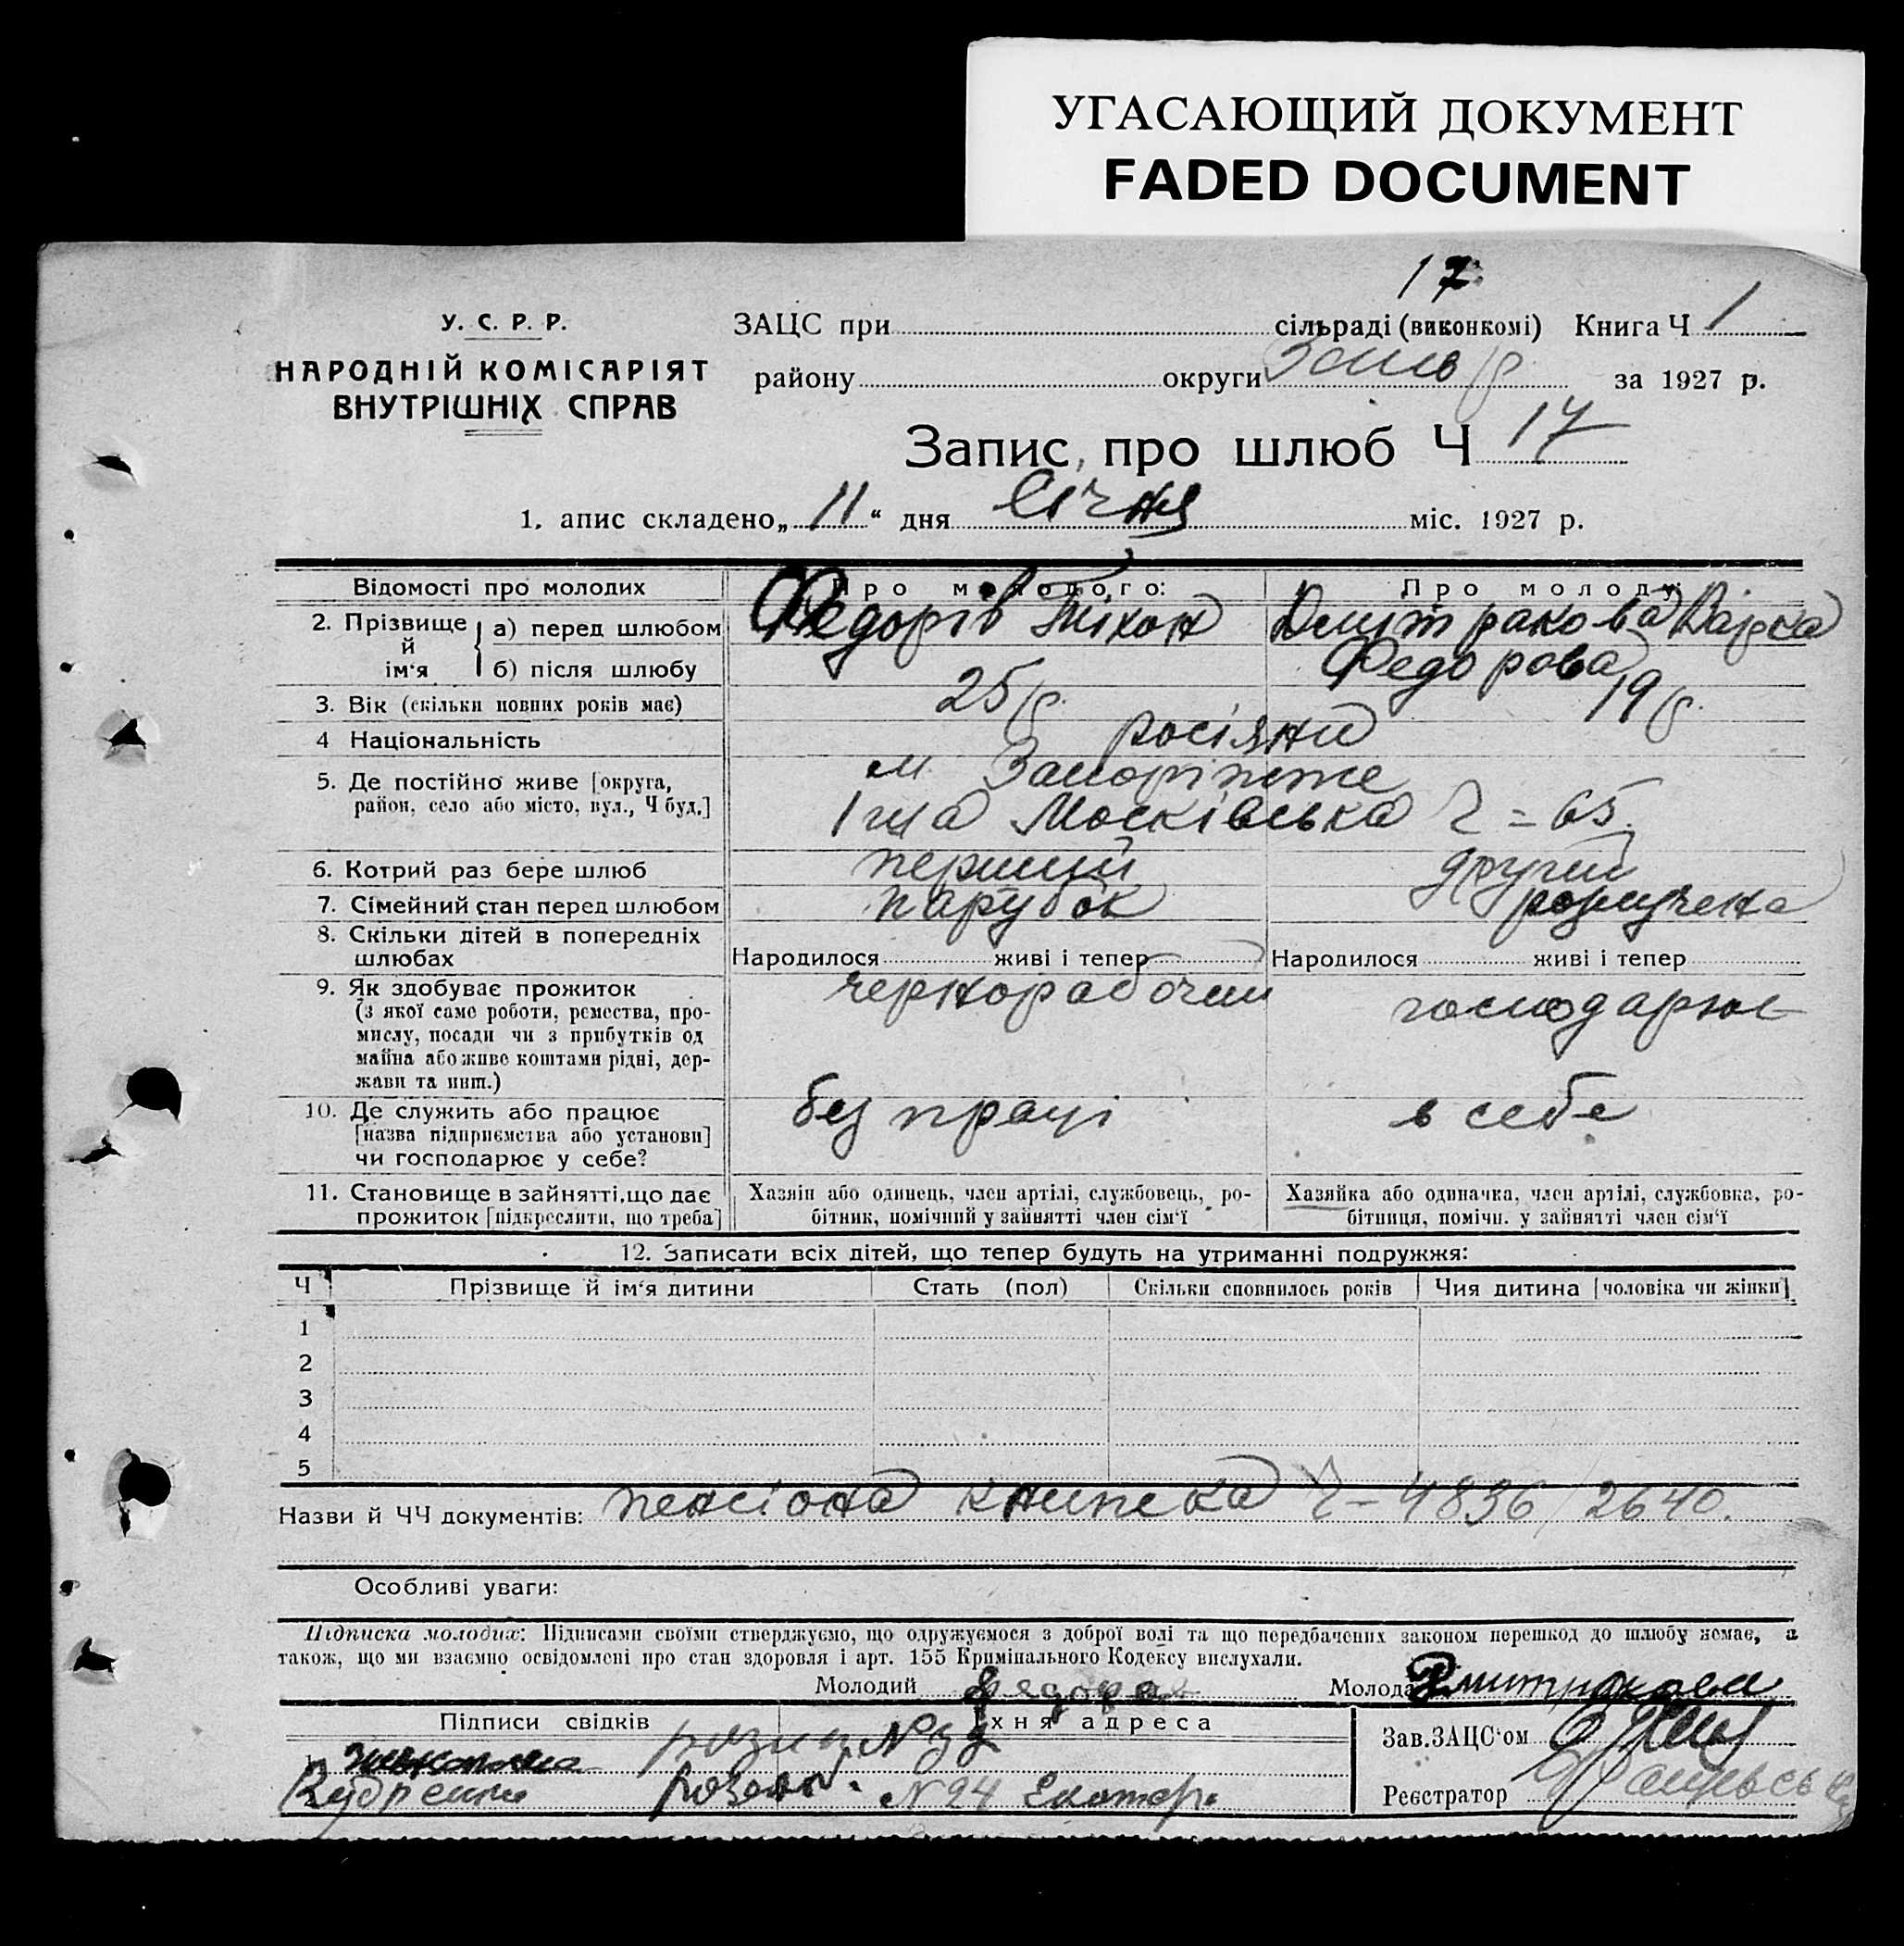 УГАСАЮЩИЙ ДОКУМЕНТ
FADED DOCUMENT
17
У. С. Р. Р.
НАРОДНІЙ КОМІСАРІЯТ
ВНУТРІШНІХ СПРАВ
ЗАЦС при сільраді (виконкомі) Книга Ч 1
району округи за 1927 р.
Запис про шлюб Ч 17
1. апис складено „ 11 “ дня Січня міс. 1927 р.
Відомості про молодих Про молодого: Про молоду:
2. Прізвище й ім'я а) перед шлюбом Федорів Тіхон Дмитракова
б) після шлюбу Федорова
3. Вік (скільки повних років має) 25 р. 19 р.
4 Національність росіяни
5. Де постійно живе [округа, м Запоріжже
район, село або місто, вул., Ч буд.] Московська Ч = 65.
6. Котрий раз бере шлюб перший другий
7. Сімейний стан перед шлюбом парубок розлучена
8. Скільки дітей в попередніх
шлюбах Народилося живі і тепер Народилося живі і тепер
9. Як здобуває прожиток чернорабочий господарює
(з якої саме роботи, ремества, про-
мислу, посади чи з прибутків од
майна або живе коштами рідні, дер-
жави та инш.)
10. Де служить або працює без праці в себе
[назва підприємства або установи]
чи господарює у себе?
11. Становище в зайнятті, що дає Хазяін або одинець, член артілі, службовець, ро- Хазяйка або одиначка, член артілі, службовка, ро-
прожиток [підкреслити, що треба] бітник, помічний у зайнятті член сім'ї бітниця, помічн. у зайнятті член сім'ї
12. Записати всіх дітей, що тепер будуть на утриманні подружжя:
Ч Прізвище й ім'я дитини Стать (пол) Скільки сповнилось років Чия дитина [чоловіка чи жінки]
1
2
3
4
5
Назви й ЧЧ документів: пенсіона книжка Ч – 4836/2640.
Особливі уваги:
Підписка молодих: Підписами своїми стверджуємо, що одружуємося з доброї волі та що передбачених законом перешкод до шлюбу немає, а
також, що ми взаємно освідомлені про стан здоровля і арт. 155 Кримінального Кодексу вислухали.
Молодий Молода Дмитракова
Підписи свідків Їхня адреса Зав. ЗАЦС'ом
№ 24 Екатер. Реєстратор